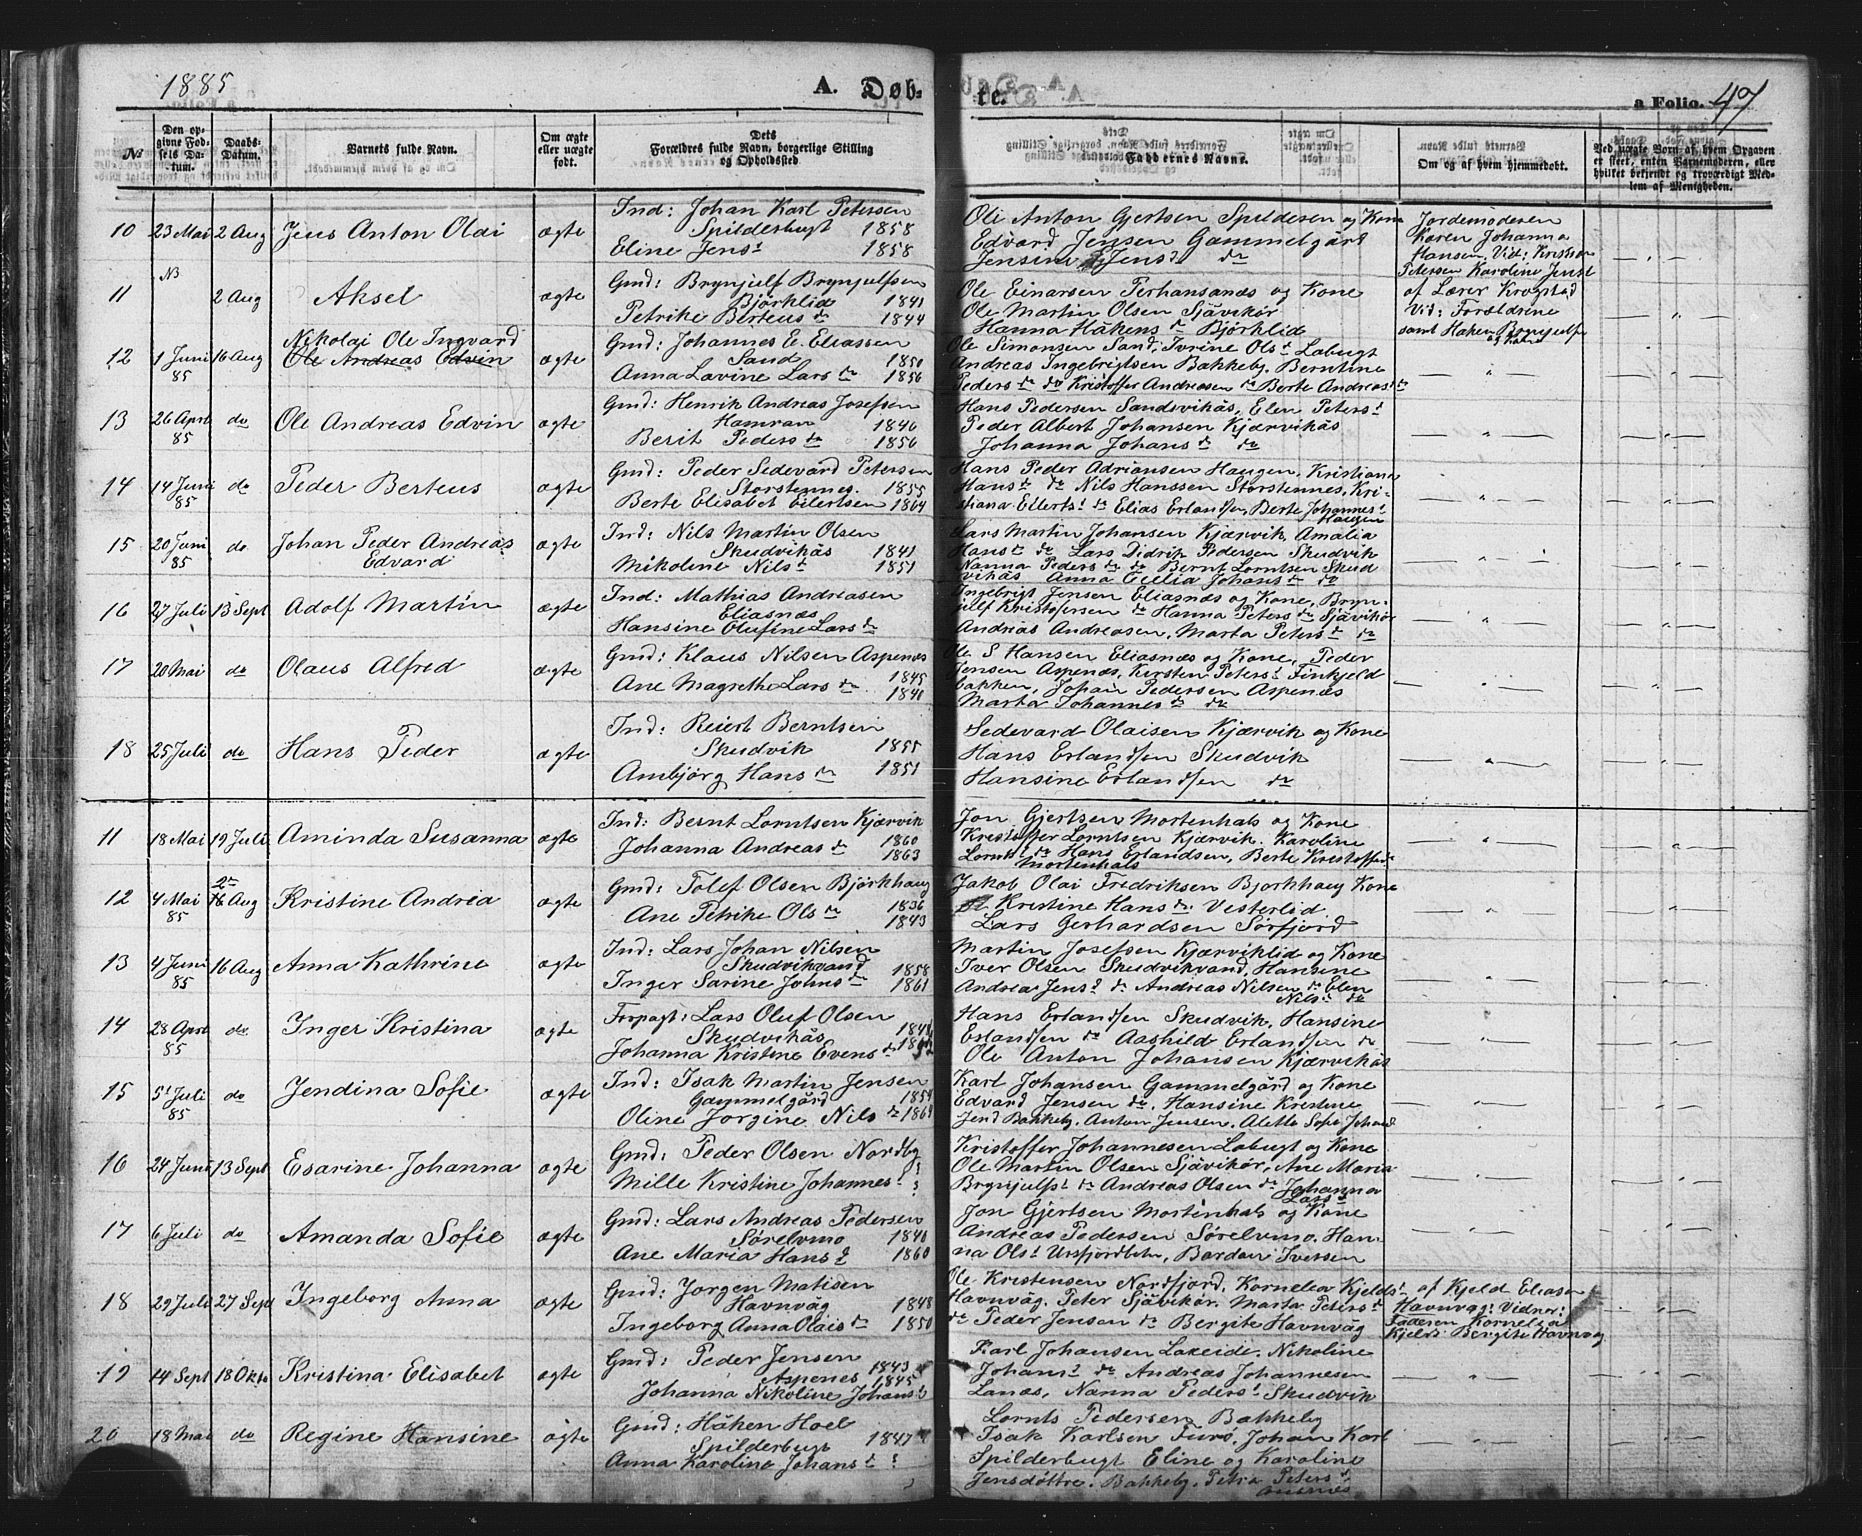 1885
A. Døb-
te.
a Folio. 47
№
Den op-
givne Fød-
sels Da-
tum.
Daabs-
Datum.
Barnets fulde Navn.
Om ægte
eller uægte
født.
Dets
Forældres fulde Navn, borgerlige Stilling
og Opholdssted
Faddernes Navne.
Om og af hvem hjemmedøbt.
Ved uægte Børn af hvem Opgaven
er skeet, enten Barnemoderen, eller
hvilket bekjendt og troværdigt Med-
lem af Menigheden.
10 23 Mai 2 Aug Jens Anton Olai ægte
Ind: Johan Karl Petersen
Spilderbugt 1858
Eline Jens d 1858
Ole Anton Gjertsen Spildren og Kone
Edvard Jensen Gammelgård
Jensine Jens d do
Jordemoderen
Karen Johanna
Hansen Vid: Kristian
Petersen Karoline Jensd
11 NB 2 Aug Aksel ægte
Gmd: Brynjulf Brynjulfsen
Björklid 1841
Petrike Berteus dr 1844
Ole Einarsen Terhansanæs og Kone
Ole Martin Olsen Sjåvikør
Hanna Håkens dr Björklid
af Lærer Krogstad
Vid: Forældrene
samt Haken Brynjulfs
og Kone
12 1 Juni 85 16 Aug Nikolai Ole Ingvard
Ole Andreas Edvin ægte
Gmd: Johannes E. Eliassen
Sand 1850
Anna Lavine Lars dr 1856
Ole Simonsen Sand, Ivrine Ols d Labugt
Andreas Ingebrigtsen Bakkeby, Berntine
Peders dr do Kristoffer Andreasen do Berte Andreas dr
13 26 Apri 85 do Ole Andreas Edvin ægte
Gmd: Henrik Andreas Josefsen
Hamran 1840
Berit Peders dr 1850
Hans Pedersen Sandsvikås, Elen Peters d
Peder Albert Johansen Kjærvikås
Johanna Johans dr do
14 14 Juni 85 do Peder Berteus ægte
Gmd: Peder Sedevard Petersen
Storstennes. 1855
Berte Elisabet Eilertsen 1864
Hans Peder Adriansen Haugen, Kristiana
Hans d do Nils Hanssen Storstennes, Kri-
stiana Ellerts d do Elias Erlandsen, Berte Johannes d
Haugen
15 20 Juni 85 do Johan Peder Andreas
Edvard ægte
Ind: Nils Martin Olsen
Skudvikås 1841
Mikoline Nils d 1851
Lars Martin Johansen Kjærvik, Amalia
Hans d do Lars Didrik Pedersen Skudvik
Nanna Peders dr do Bernt Lorntsen Skud
vikås Anna Cecilia Johans dr do
16 27 Juli 13 Sept Adolf Martin ægte
Ind: Mathias Andreasen
Eliasnæs
Hansine Olufine Lars dr
Ingebrigt Jensen Eliasnæs og Kone, Bryn-
julf Kristofersen do Hanna Peters dr Sjåvikør
Andreas Andreasen, Marta Peters d do
17 20 Mai do Olaus Alfred ægte
Gmd: Klaus Nilsen Aspenæs
1845
Ane Magrethe Lars dr 1840
Ole S Hansen Eliasnæs og Kone, Peder
Jensen Aspenæs, Kersten Peters d Finkjeld
bakken, Johan Pedersen Aspenæs
Marta Johannes dr do
18 25 Juli do Hans Peder ægte
Ind: Reiert Berntsen
Skudvik 1855
Ambjörg Hans dr 1851
Sedevard Olaisen Kjærvik og Kone
Hans Erlandsen Skudvik
Hansine Erlandsen do
11 18 Mai 19 Juli Aminda Susanna ægte
Ind: Bernt Lorntsen Kjærvik
1860
Johanna Andreas dr 1863
Jon Gjertsen Mortenhals og Kone
Kristoffer Lorntsen Kjærvik. Karoline
Lornts d do Hans Erlandsen, Berte Kristoffersd
Mortenhals
12 4 Mai 85 2 Aug Kristine Andrea ægte
Gmd: Tolef Olsen Björkhaug
1836
Ane Petrike Ols dr 1843
Jakob Olai Fredriksen Bjorkhaug Kone
Kristine Hans dr Vesterlid
Lars Gerhardsen Sörfjord
13 4 Juni 85 16 Aug Anna Kathrine ægte
Ind: Lars Johan Nilsen
Skudvikvand 1858
Inger Sarine Johns dr 1861
Martin Josefsen Kjærviklid og Kone
Iver Olsen Skudvikvand, Hansine
Andrea Jens d do Andreas Nilsen do Elen
Nils d do
14 28 Apri 85 do Inger Kristina ægte
Forpagt: Lars Oluf Olsen
Skudvikås
Johanna Kristine Evens dr
Hans Erlandsen Skudvik, Hansine
Erlandsen do Aashild Erlandsen do
Ole Anton Johansen Kjærvikås
15 5 Juli 85 do Jendina Sofie ægte
Ind: Isak Martin Jensen
Gammelgård 1854
Oline Jorgine Nils dr 1864
Karl Johansen Gammelgård og Kone
Edvard Jensen do. Hansine Kristine
Jensd Bakkeby. Anton Jensen. Alette Sofie Johand
16 24 Juni 13 Sept Esarine Johanna ægte
Gmd: Peder Olsen Nordby
Mille Kristine Johannes d
Kristoffer Johannesen Labugt og Kone
Ole Martin Olsen Sjåvikør, Ane Maria
Brynjulfs d do Andreas Olsen do Johanna
Lars d
17 6 Juli do Amanda Sofie ægte
Gmd: Lars Andreas Pedersen
Sörelvmo 1840
Ane Maria Hans d 1860
Jon Gjertsen Mortenhals og Kone
Andreas Pedersen Sörelvmo, Han-
na Ols d Ursfjordbotn, Bardon Iversen
18 29 Juli 27 Sept Ingeborg Anna ægte
Gmd: Jorgen Matisen
Havnvåg 1848
Ingeborg Anna Olais dr 1850
Ole Kristensen Nordfjord, Kornelia Kjelds d
Havnvåg. Peter Sjåvikør. Marta Peters d
do Peder Jensen do Bergite Havnvåg
af Kjeld Eliasen
Havnvåg: Vidner:
Faderen Kornelia
Kjelds. Bergite Havnvåg
19 14 Sept 18 Okto Kristina Elisabet ægte
Gmd: Peder Jensen 1843
Aspenes 1845
Johanna Nikoline Johans d
Karl Johansen Lakeide. Nikoline
Johans d do Andreas Johannesen
Lanæs, Nanna Peders d Skudvik
Lornts Pedersen Bakkeby
20 18 Mai do Regine Hansine ægte
Gmd: Håken Hoel
Spilderbugt 1847
Anna Karoline Johans d
Isak Karlsen Furö Johan Karl
Spilderbugt Eline og Karoline
Jensdøttre. Bakkeby. Petra Peters d